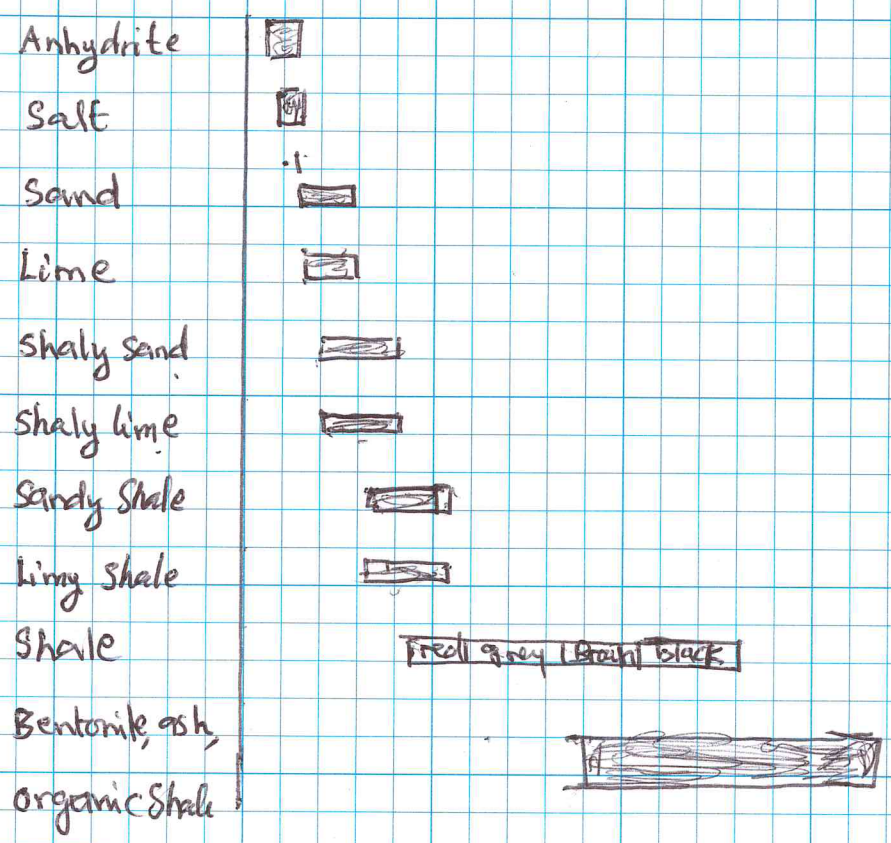 Anhydrite
Salt
Sand
Lime
Shaly Sand
Shaly lime
Sandy Shale
Limy Shale
Shale red grey Brown black
Bentonite, ash,
organic Shale